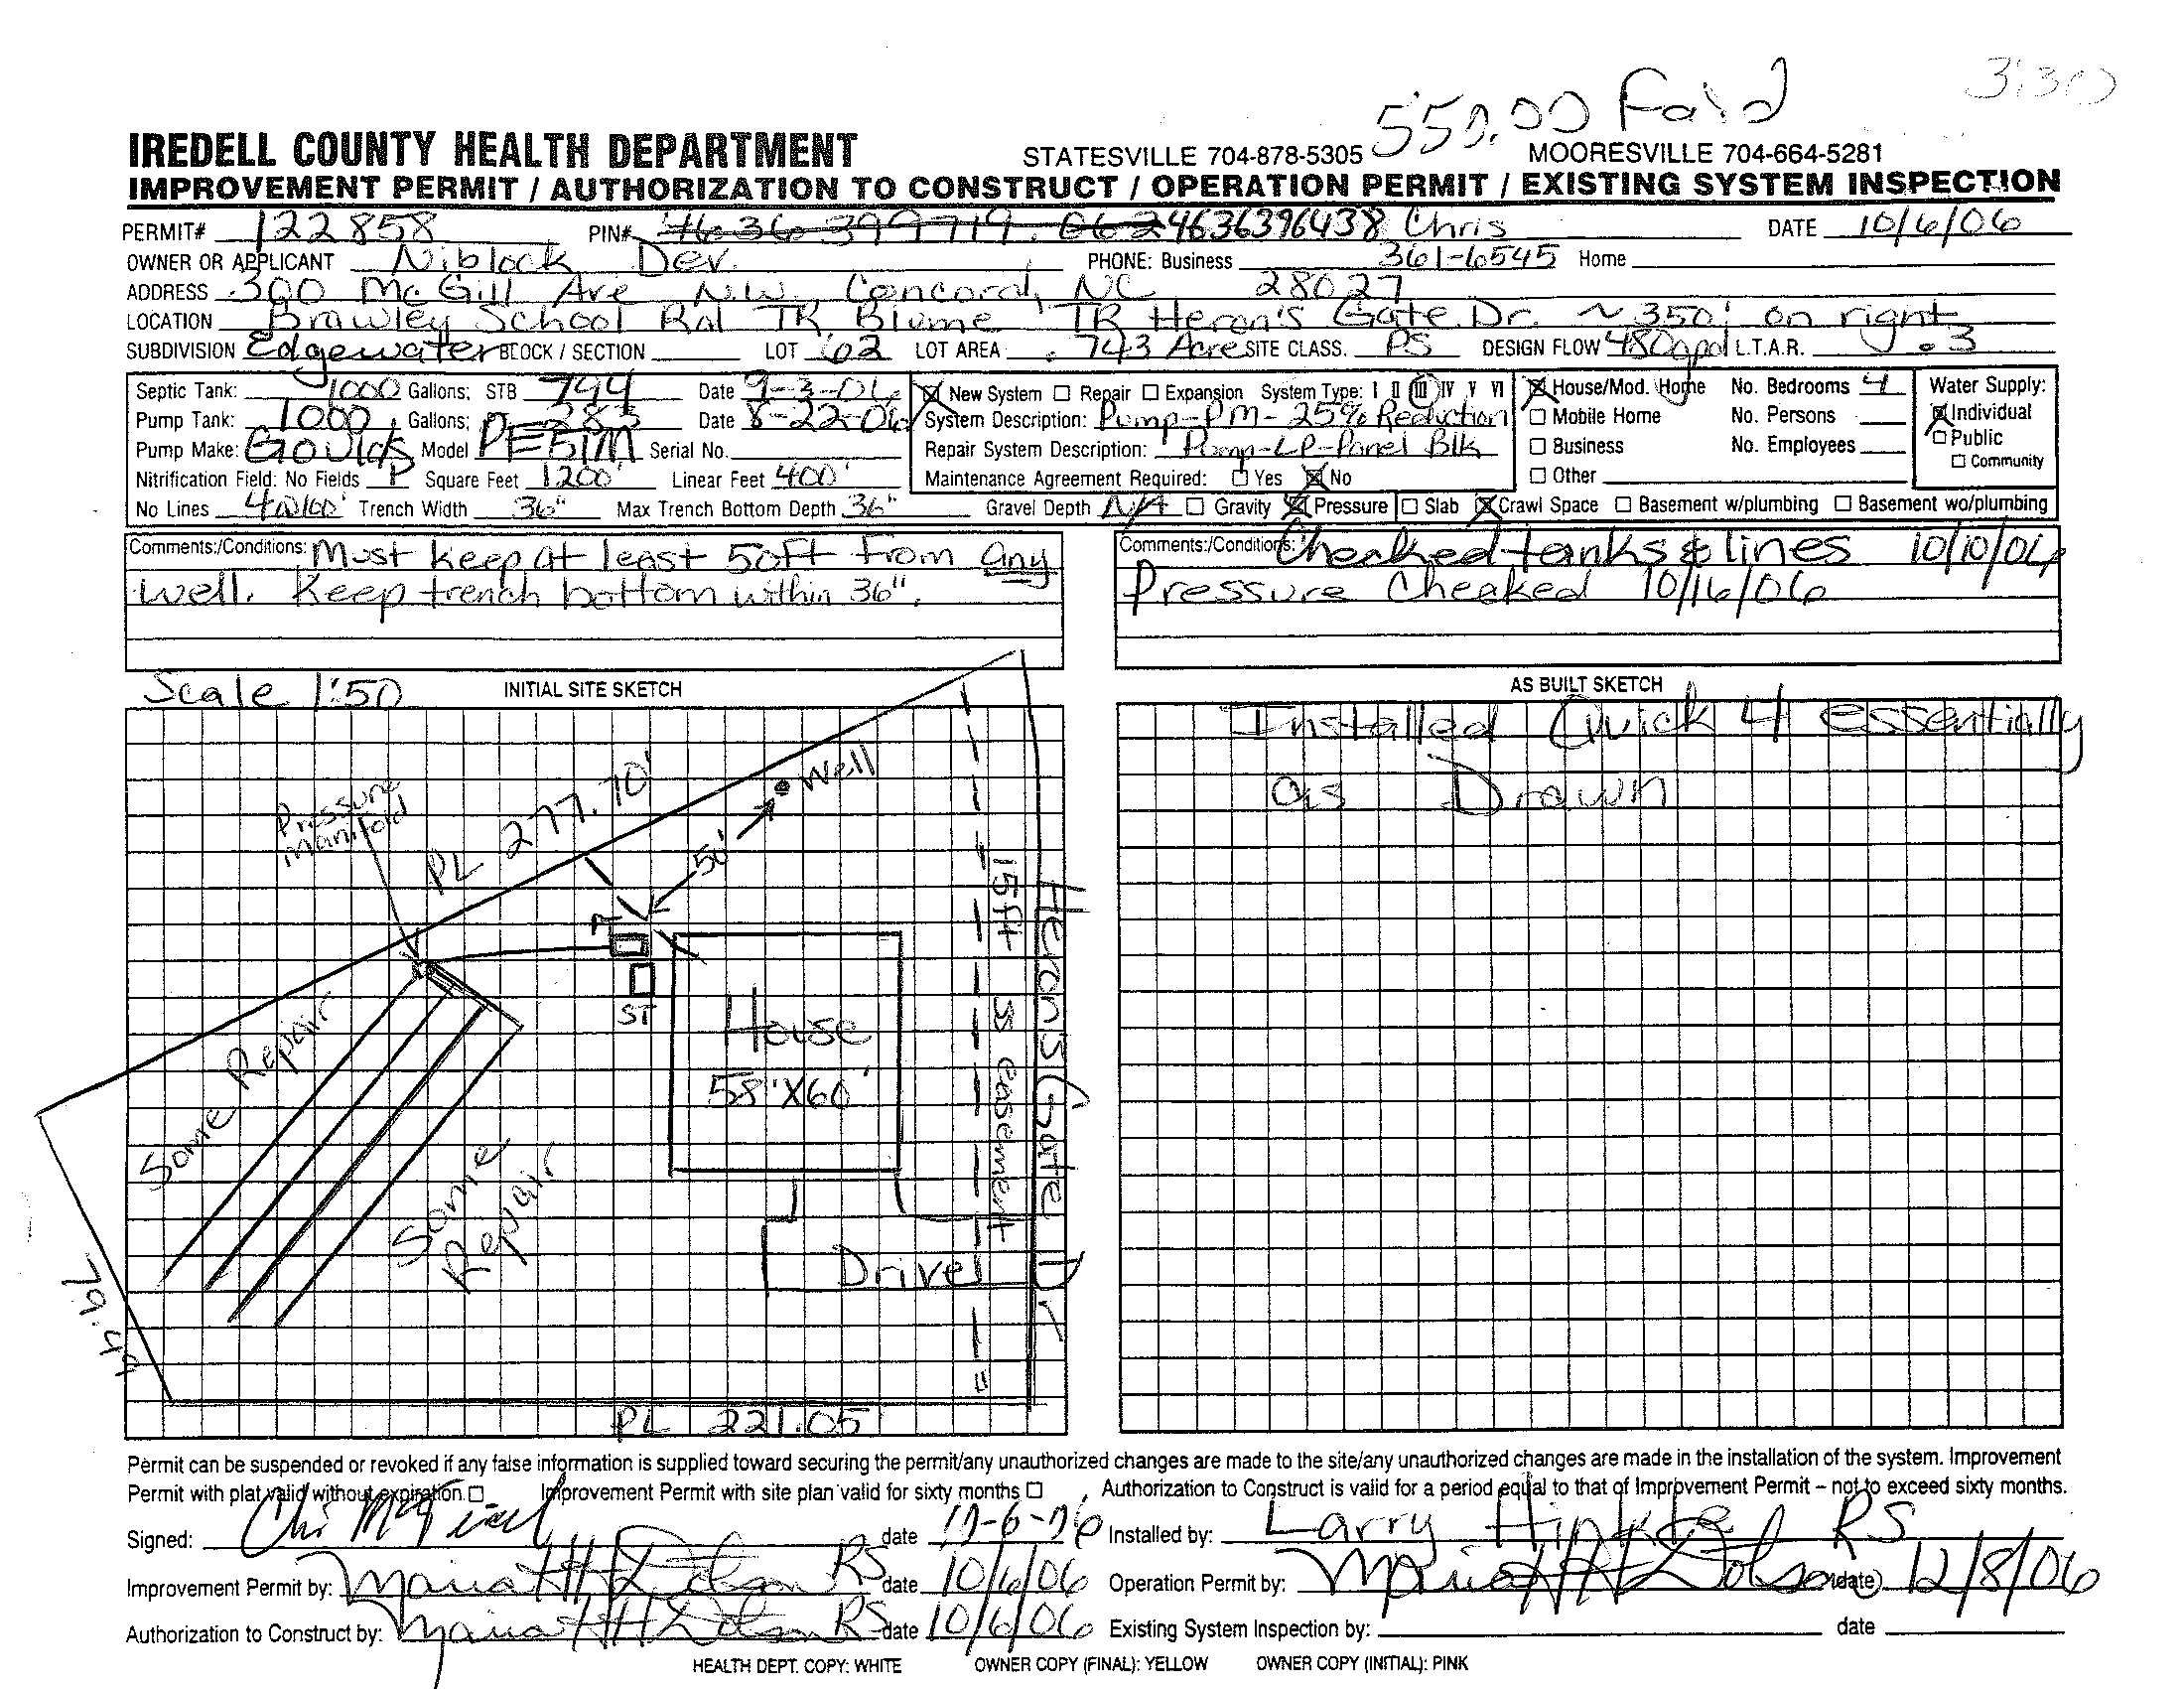 550.00 Paid 3:30
IREDELL COUNTY HEALTH DEPARTMENT STATESVILLE 704-878-5305 MOORESVILLE 704-664-5281
IMPROVEMENT PERMIT / AUTHORIZATION TO CONSTRUCT / OPERATION PERMIT / EXISTING SYSTEM INSPECTION
PERMIT# 122858 PIN# 4636396438 Chris DATE 10/6/06
OWNER OR APPLICANT Niblock Dev. PHONE: Business 361-6545 Home
ADDRESS 300 McGill Ave N.W. Concord, NC 28027
LOCATION Brawley School Rd TR Blume TR Heron's Gate Dr. ~350' on right
SUBDIVISION Edgewater BLOCK / SECTION LOT 62 LOT AREA .743 Acre SITE CLASS. PS DESIGN FLOW 480gpd L.T.A.R. .3
Septic Tank: 1000 Gallons; STB 794 Date 9-3-06 New System Repair Expansion System Type: I II III IV V VI House/Mod. Home No. Bedrooms 4 Water Supply:
Pump Tank: 1000 Gallons; PT 283 Date 8-22-06 System Description: Pump-PM-25% Reduction Mobile Home No. Persons Individual
Pump Make: Goulds Model PE51M Serial No. Repair System Description: Pump-LP-Panel Blk Business No. Employees Public
Nitrification Field: No Fields P Square Feet 1200' Linear Feet 400' Maintenance Agreement Required: Yes No Other Community
No Lines 4@100' Trench Width 36" Max Trench Bottom Depth 36" Gravel Depth N/A Gravity Pressure Slab Crawl Space Basement w/plumbing Basement wo/plumbing
Comments:/Conditions: Must keep at least 50ft from any
well. Keep trench bottom within 36".
Comments:/Conditions: Checked tanks & lines 10/10/06
Pressure Checked 10/16/06
Scale 1":50 INITIAL SITE SKETCH
Pressure
manifold
PL 277.70'
Well
50'
PT
ST
House
58'X60'
15ft SS easement
Heron's Gate Dr
Some Repair
Some
Repair
Drive
79.49
PL 221.05'
AS BUILT SKETCH
Installed Quick 4 essentially
as Drawn
Permit can be suspended or revoked if any false information is supplied toward securing the permit/any unauthorized changes are made to the site/any unauthorized changes are made in the installation of the system. Improvement
Permit with plat valid without expiration. Improvement Permit with site plan valid for sixty months Authorization to Construct is valid for a period equal to that of Improvement Permit – not to exceed sixty months.
Signed: date 10-6-06 Installed by: Larry RS
Improvement Permit by: Maria H H Dotson RS date 10/6/06 Operation Permit by: Maria H H Dotson date 12/8/06
Authorization to Construct by: Maria H H Dotson RS date 10/6/06 Existing System Inspection by: date
HEALTH DEPT. COPY: WHITE OWNER COPY (FINAL): YELLOW OWNER COPY (INITIAL): PINK